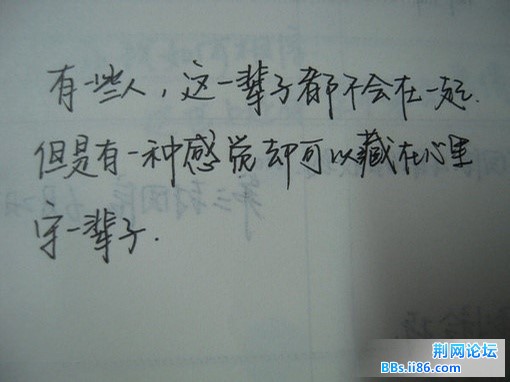 有一些人，这一辈子都不会在一起.
但是有一种感觉却可以藏在心里
守一辈子.
荆网论坛
BBs.ii86.com